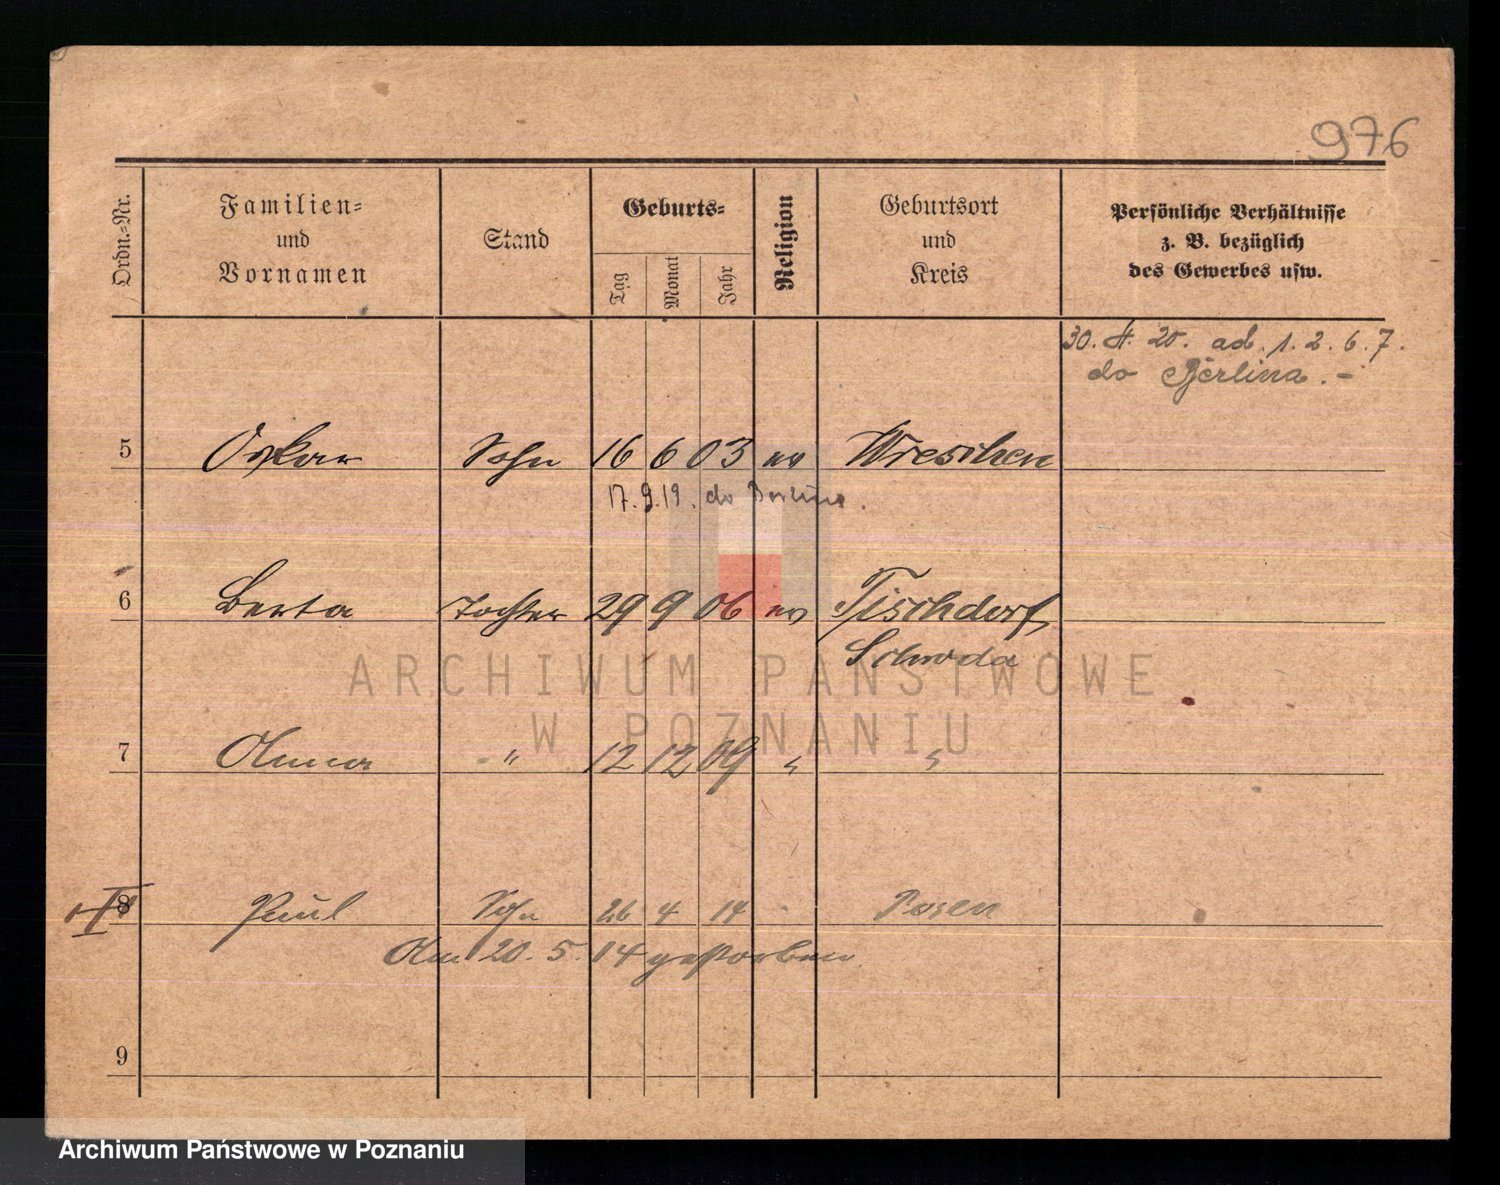 976
Ordn.-Nr.
Familien-
und
Vornamen
Stand
Geburts-
Tag
Monat
Jahr
Religion
Geburtsort
und
Kreis
Persönliche Verhältnisse
z. B. bezüglich
des Gewerbes usw.
30. 4. 20. ad. 1. 2. 6. 7.
do Berlina. -
5 Oskar Sohn 16 6 03 ev Wreschen
17. 9. 19. do Berlina.
6 Berta Tochter 29 9 06 ev Tischdorf
Schroda
ARCHIWUM PAŃSTWOWE
W POZNANIU
7 Anna " 12 12 09 " "
8 Paul Sohn 26 4 14 Posen
Am 20. 5. 14 gestorben.
9
Archiwum Państwowe w Poznaniu